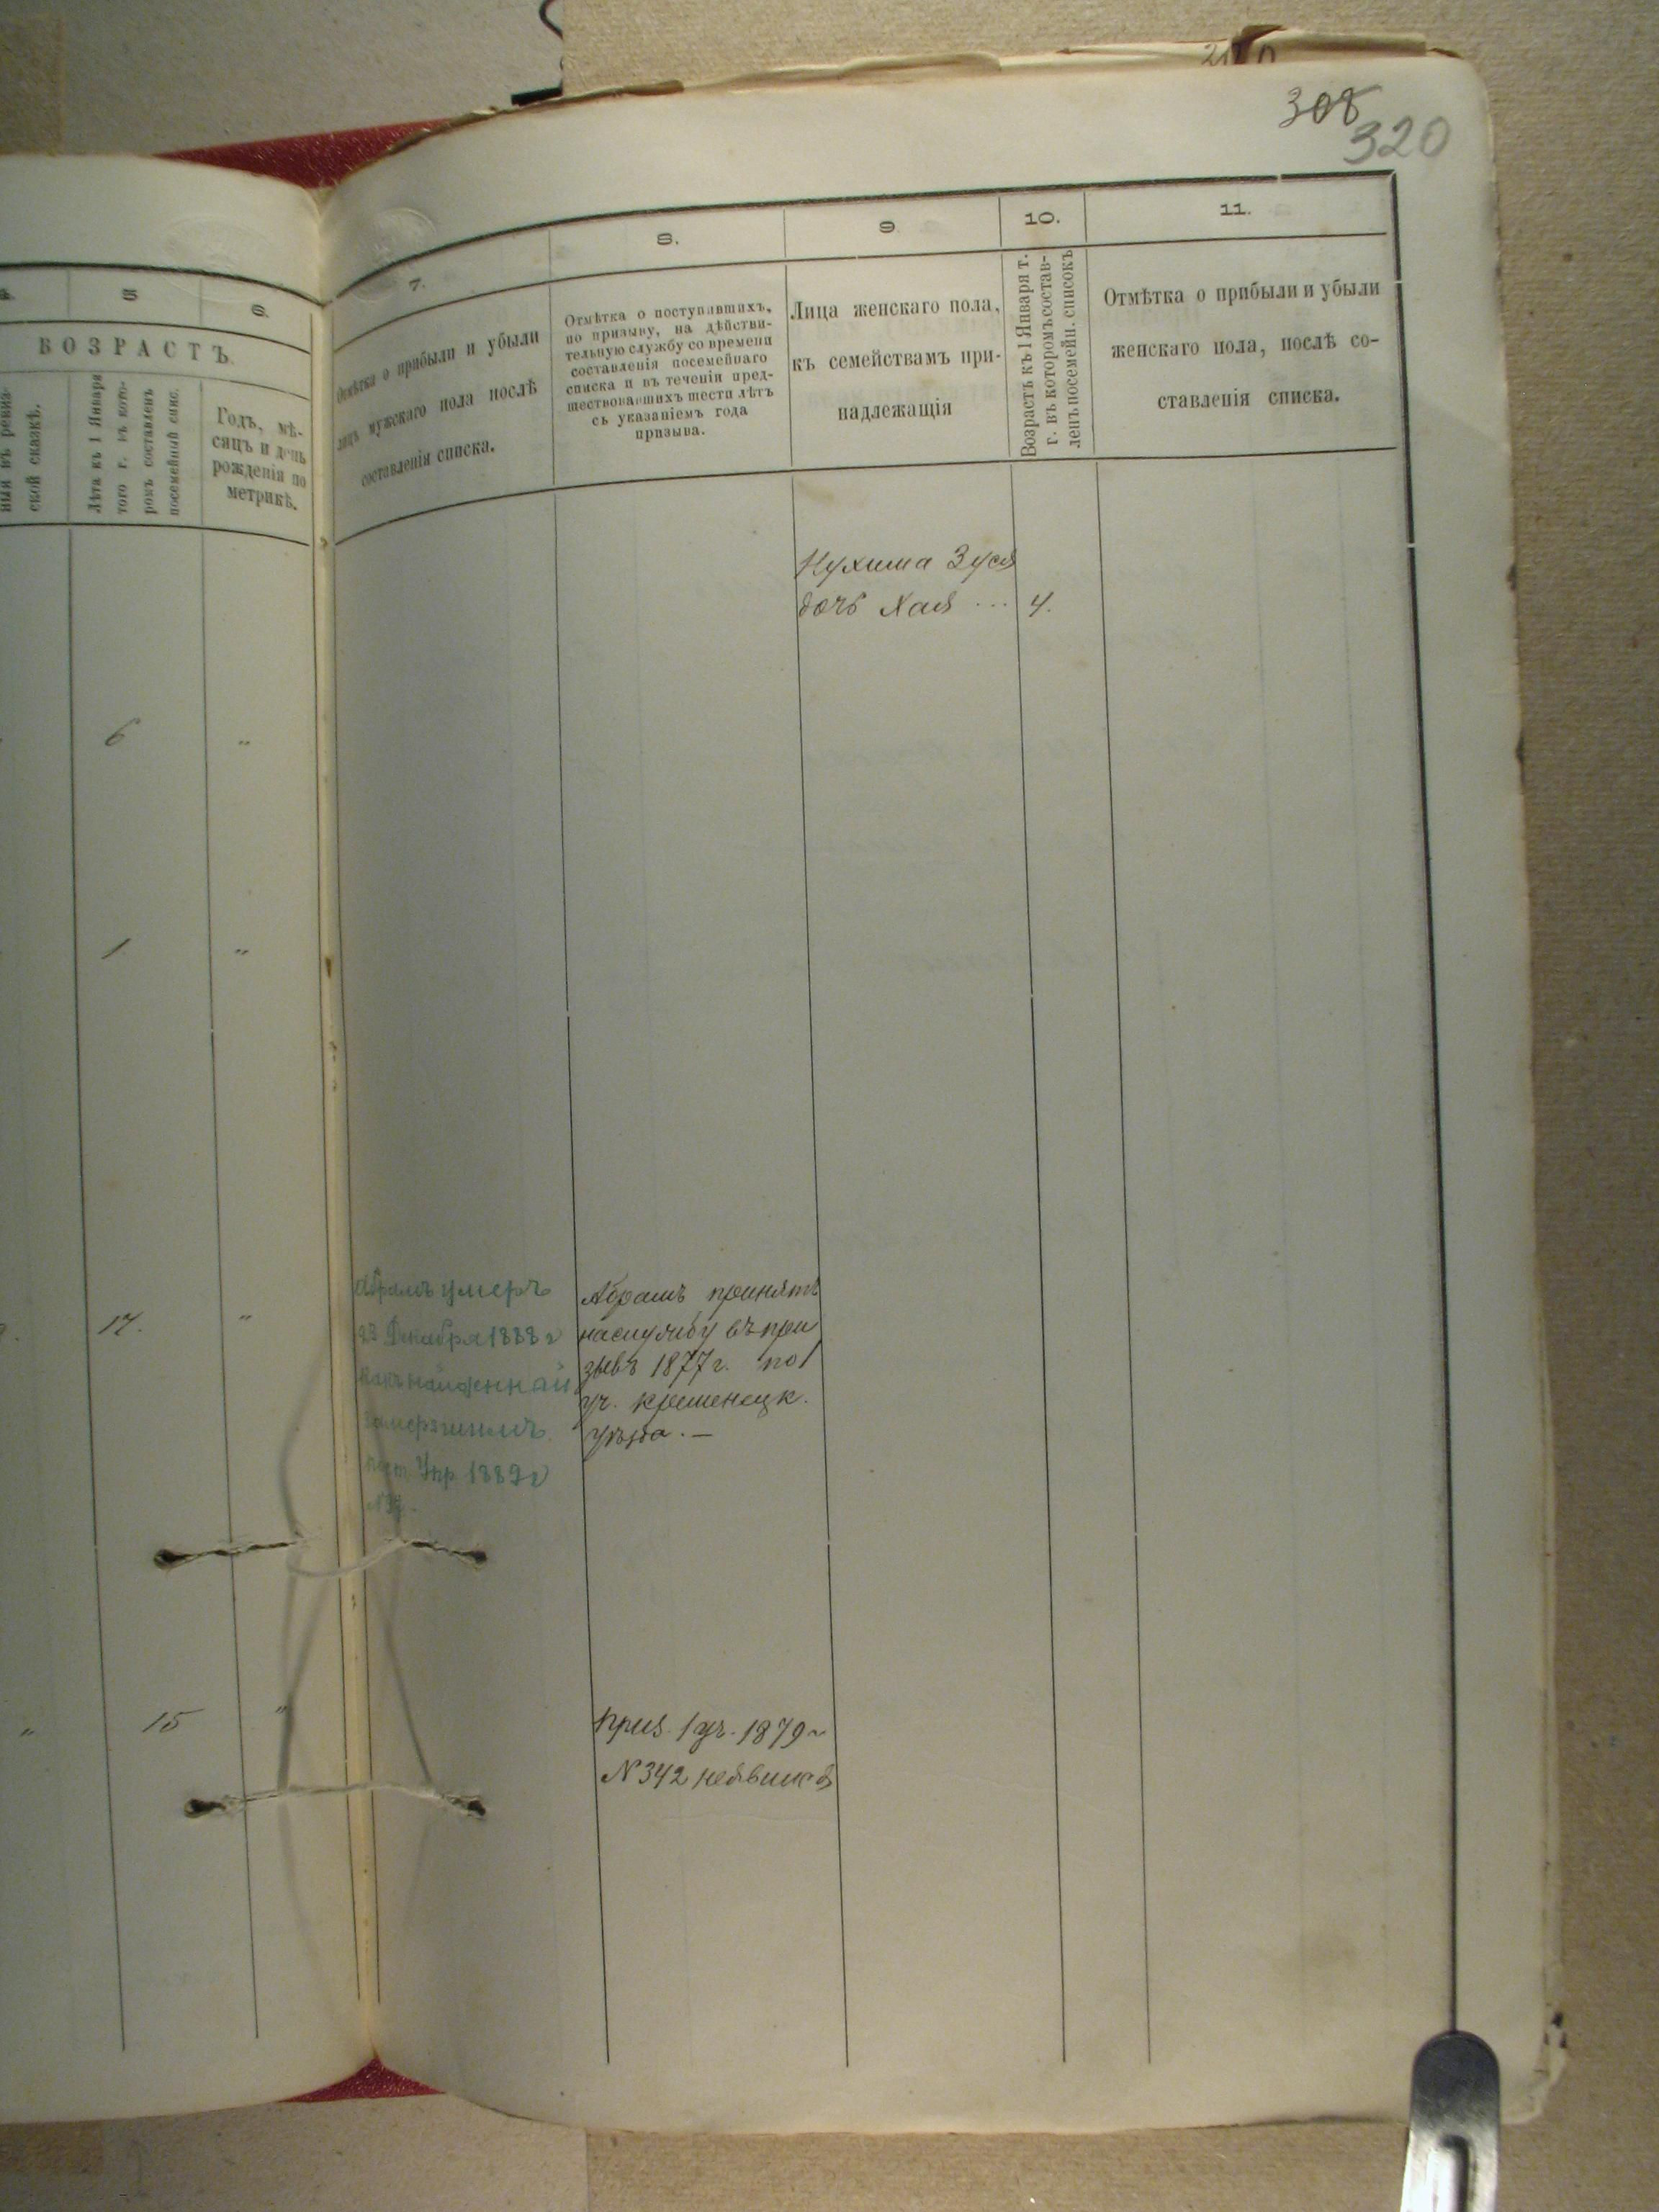 308
320
5
6.
ВОЗРАСТЪ.
ской сказкѣ.
Лѣта къ 1 Января
того г. въ кото-
ромъ составленъ
посемейный спис.
Годъ, мѣ-
сяцъ и день
рожденія по
метрикѣ.
6 "
1 "
17. "
" 15 "
7.
8.
9
10.
11.
Отмѣтка о прибыли и убыли
лицъ мужскаго пола послѣ
составленія списка.
Отмѣтка о поступившихъ,
по призыву, на дѣйстви-
тельную службу со времени
составленія посемейнаго
списка и въ теченіи пред-
шествовавшихъ шести лѣтъ
съ указаніемъ года
призыва.
Лица женскаго пола,
къ семействамъ при-
надлежащія
Возрастъ къ 1 Января т.
г. въ которомъ состав-
ленъ посемейн. списокъ
Отмѣтка о прибыли и убыли
женскаго пола, послѣ со-
ставленія списка.
Нухима Зуся
дочь Хая ... 4.
Абрамъ умеръ
23 Декабря 1888 г
замерзшимъ
Упр. 1889 г
Абрамъ принятъ
на службу въ при
зывъ 1877 г. по 1
уч. кременецк.
уѣзда. —
Приз. 1 уч. 1879 г
N 342 неявился